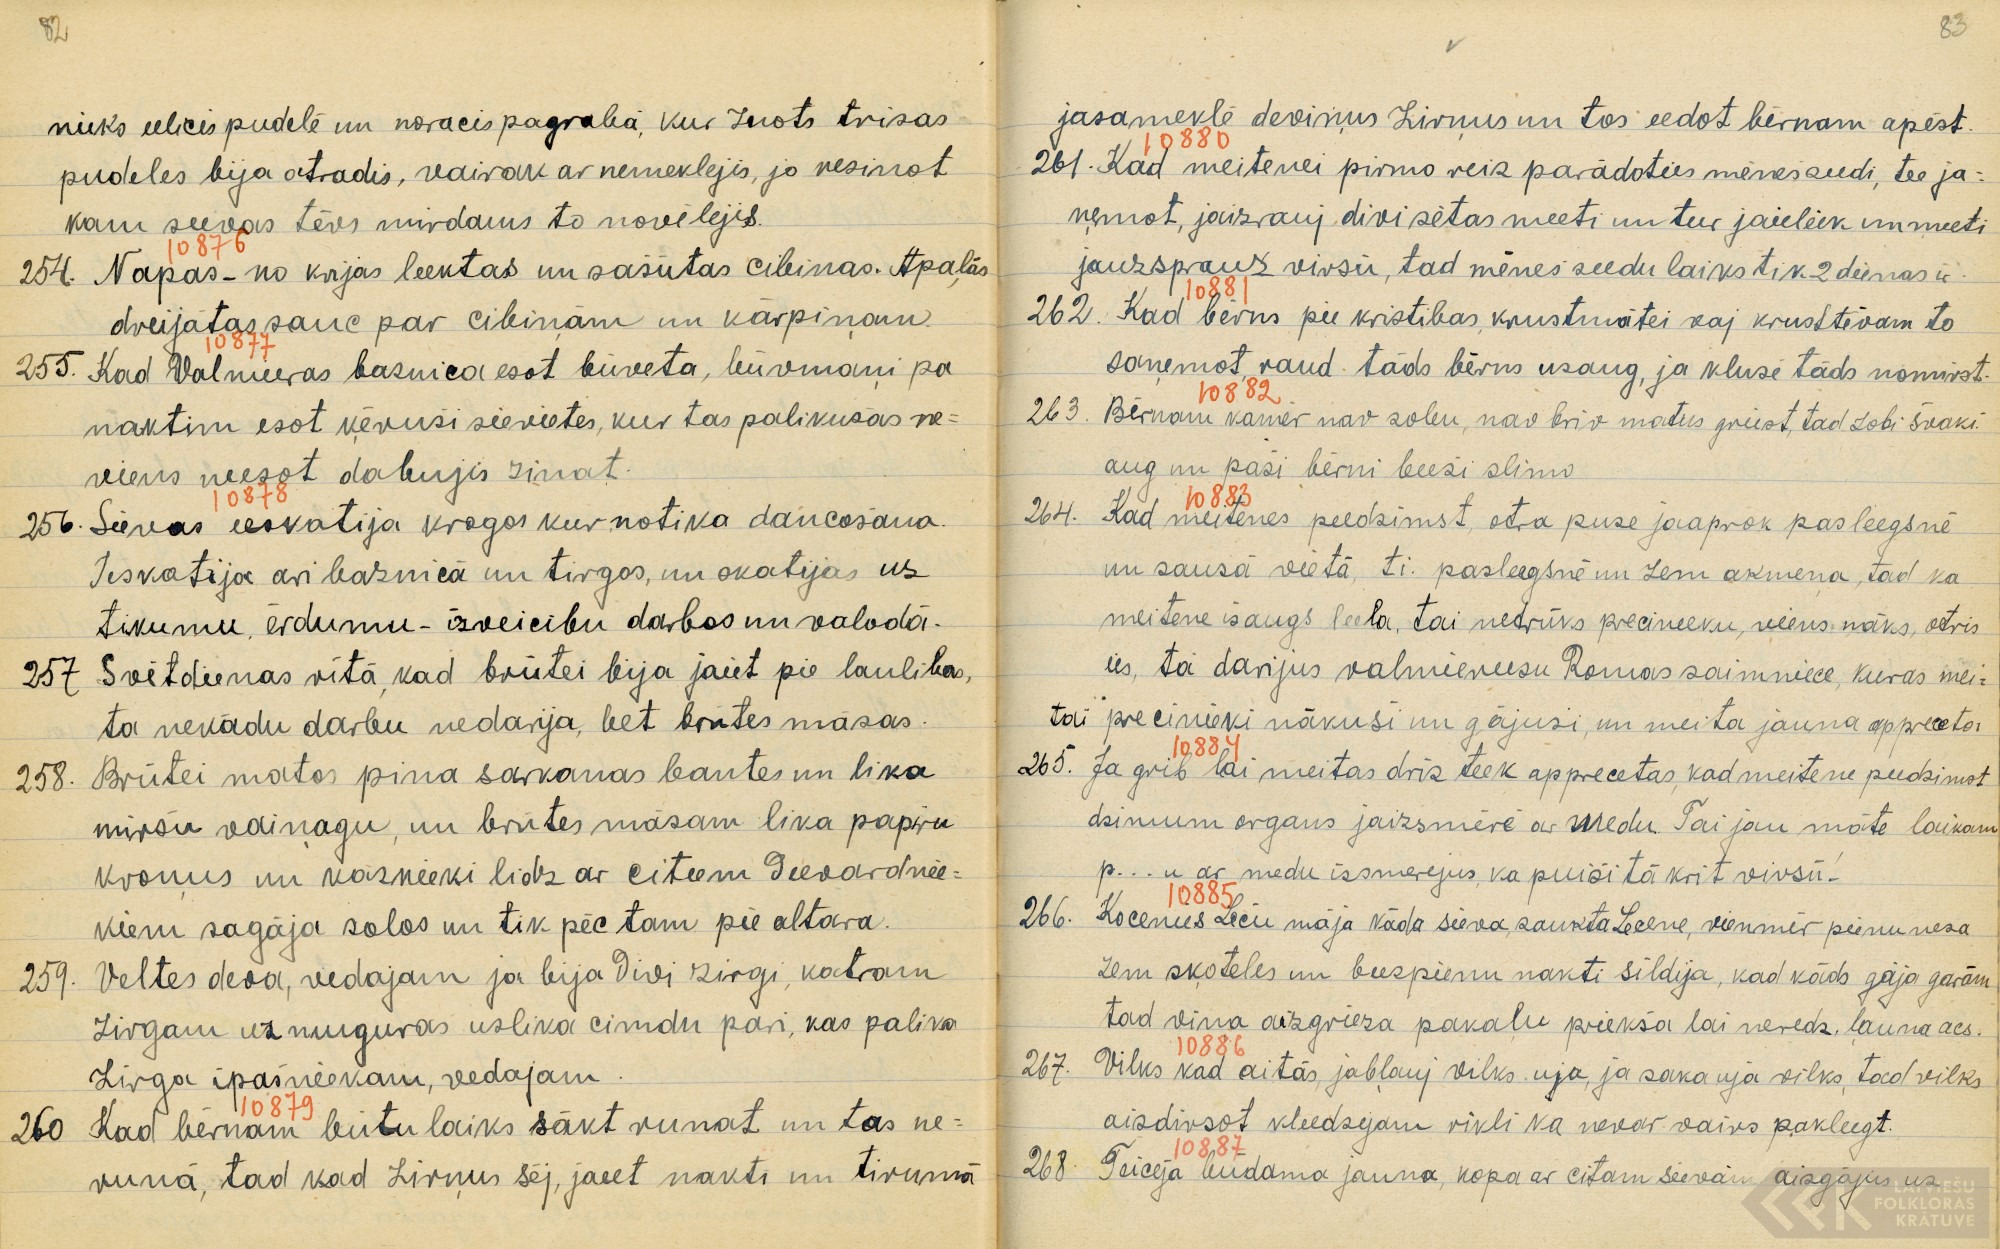 82
nieks eelicis pudelē un noracis pagrabā, kur Znots trīsas
pudeles bija atradis, vairak ar nemeklejis, jo nesinot
kam seevas tēvs mirdams to novēlejis.
10876
254. Napas - no krijas leektas un sašūtas cibinas. Apaļās
dreijātas sauc par cibiņām un kārpiņam.
10877
255. Kad Valmieras baznica esot būveta, būvmaņi pa
naktim esot ķēruši sievietes, kur tas palikušas ne=
viens neesot dabujis zinat.
10878
256. Sievas ieskatija krogos kur notika dancošana.
Ieskatija ari baznicā un tirgos, un skatijas uz
tikumu, ērdumu - izveicibu darbos un valodā.
257 Svētdienas rītā, kad brūtei bija jaiet pie laulibas,
ta nekādu darbu nedarija, bet brūtes māsas.
258. Brūtei matos pina sarkanas bantes un lika
miršu vaiņagu, un brūtes māsam lika papiru
kroņus un kāzneeki lidz ar citeem Deevardnie=
kiem sagāja solos un tik pēc tam pie altara.
259. Veltes deva, vedajam ja bija Divi zirgi, katram
zirgam uz muguras uzlika cimdu pari, kas palika
zirga ipašneekam, vedajam.
10879
260 Kad bērnam būtu laiks sākt runat un tas ne=
runā, tad kad Zirņus sēj, jaeet nakti un tirumā
83
jasameklē deviņus Zirņus un tos eedot bērnam apēst.
10880
261. Kad meitenei pirmo reiz parādoties mēnesseedi, tee ja=
ņemot, jaizrauj divi sētas meeti un tur jaieleek un meeti
jauzsprauž virsū, tad mēnesseedu laiks tik 2 dienas ir.
10881
262. Kad bērns pie kristibas, krustmātei vaj krusttēvam to
saņemot raud tāds bērns uzaug, ja klusē tāds nomirst.
10882
263. Bērnam kamēr nav zobu, nav brīv matus griest, tad zobi švaki
aug un paši bērni beeži slimo
10883
264. Kad meitenes peedzimst, otra puse jaaprok pasleegsnē
un sausā vietā, ti. pasleegsnē un zem akmeņa, tad ka
meitene isaugs leela, tai netrūks precineeku, viens nāks, otris
ies, tā darijus valmiereesu Romas saimniece, kuras mei=
tai precinieki nākuši un gājuši, un meita jauna apprecēta
10884
265. Ja grib lai meitas drīz teek apprecetas, kad meitene peedzimst
dzimum organs jaizsmērē ar medu. Tai jau māte laikam
p... u ar medu issmerejus, ka puiši tā krit virsū!
10885
266. Kocenues Leču māja kāda sieva, saukta Lecene, vienmēr pienu nesa
zem skoteles un beespienu nakti sildija, kad kāds gāja garām
tad viņa aizgrieza pakaļu priekšā lai neredz ļauna acs.
10886
267. Vilks kad aitās, jabļauj vilks uja, ja saka ujā vilks, tad vilks
aisdirsot kleedzejam rikli ka nevar vairs pakleegt.
10887
268 Teicēja būdama jauna, kopa ar citam sievām aizgājus uz
LATVIEŠU
FOLKLORAS
KRĀTUVE